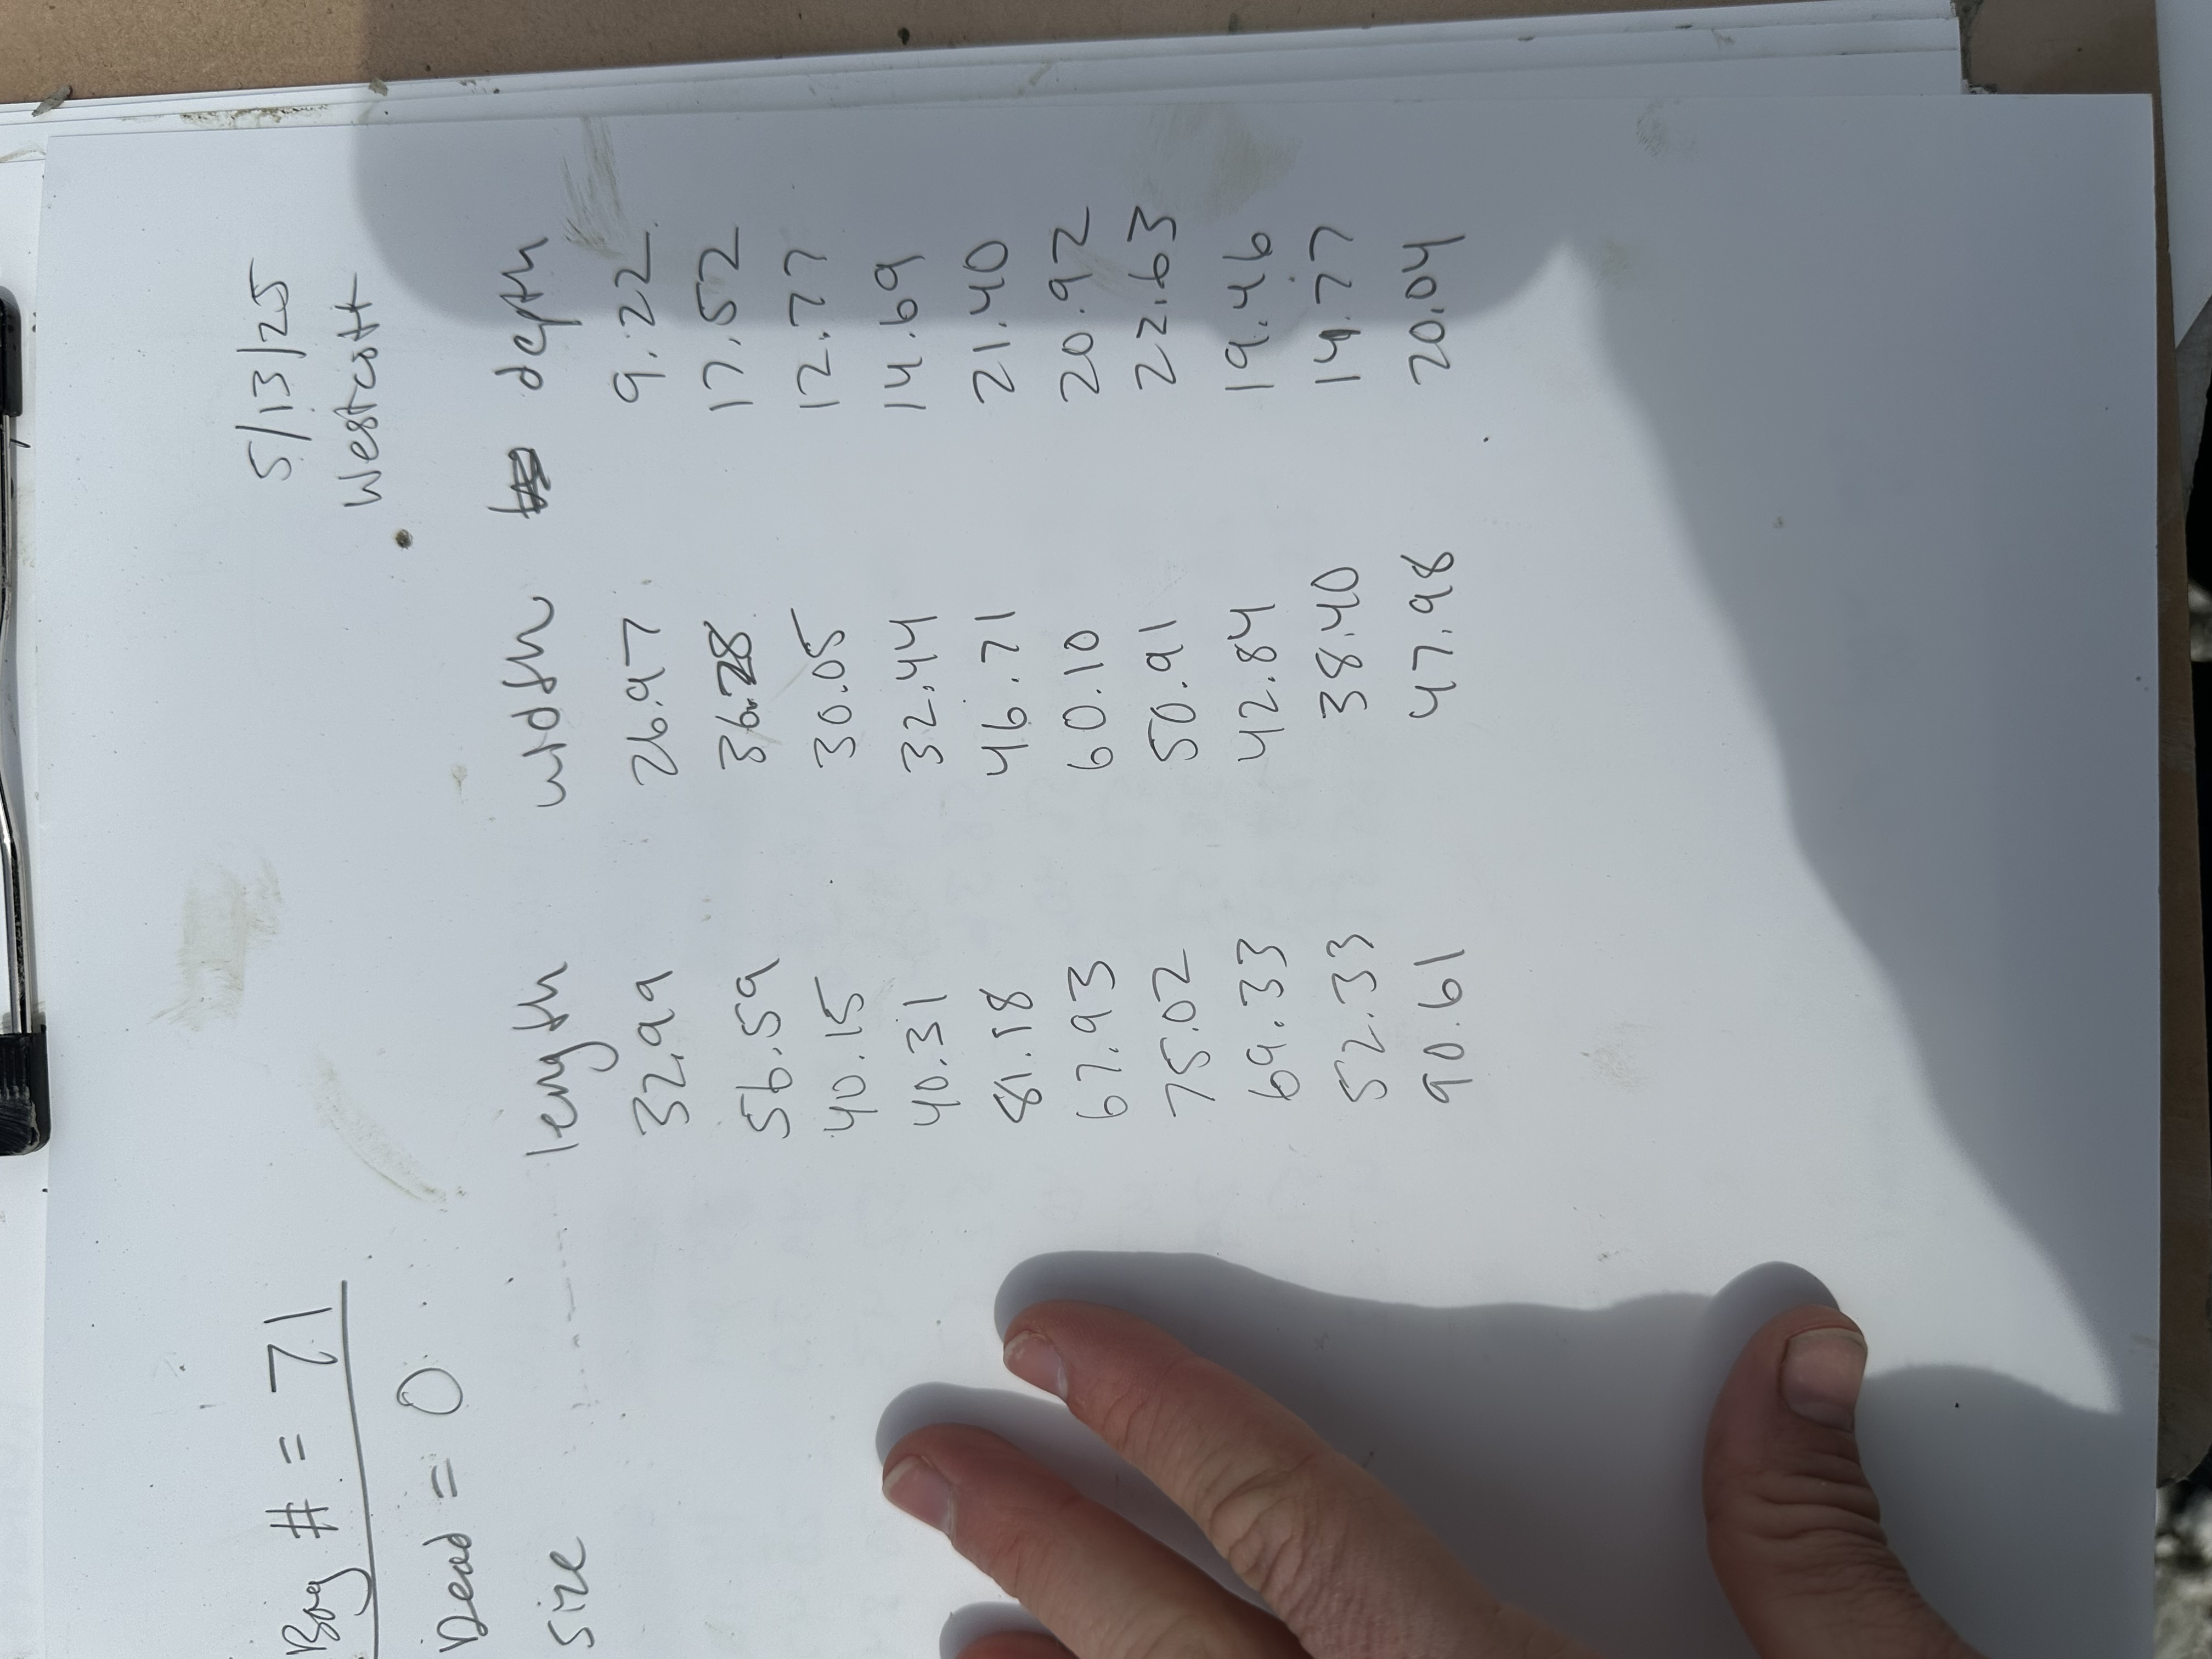 5/13/25
Bag # = 71
Westcott
Dead = 0
size length width depth
32.99 26.97 9.22
56.59 36.28 17.52
40.15 30.05 12.77
40.31 32.44 14.69
81.18 46.71 21.40
67.93 60.10 20.92
75.02 50.91 22.63
69.33 42.84 19.46
52.33 38.40 14.77
90.61 47.98 20.04